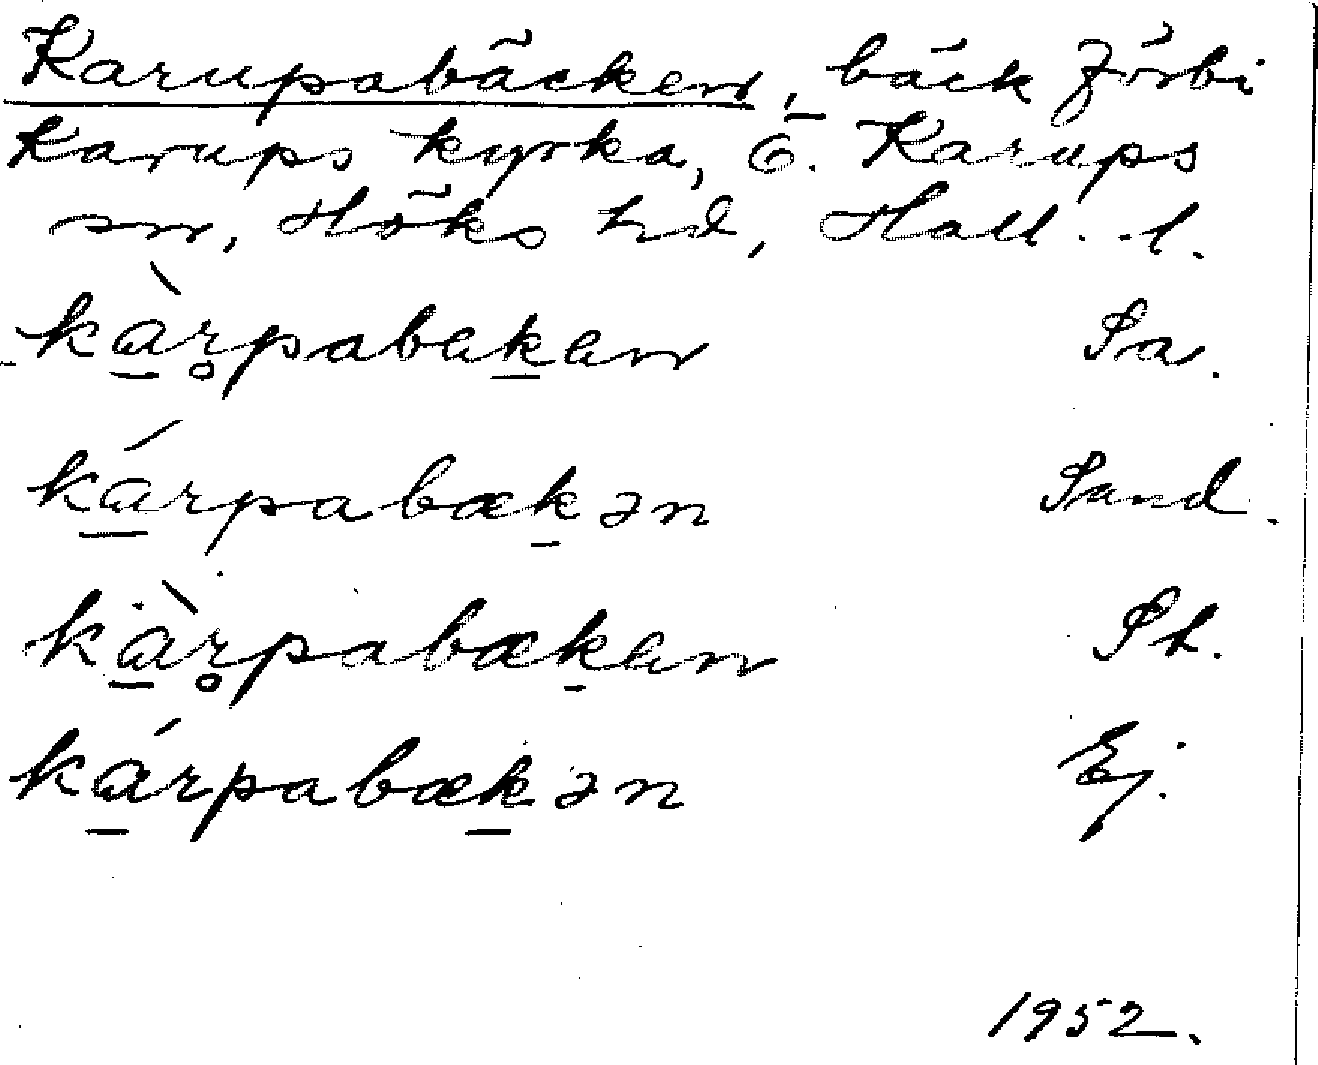 Karupabäcken, bäck förbi
Karups kyrka, Ö. Karups
sn, Höks hd, Hall. l.
kàr̥pabakan Sa.
kárpabækən Sand.
kàr̥pabækan Sk.
kárpabækən Ej.
1952.